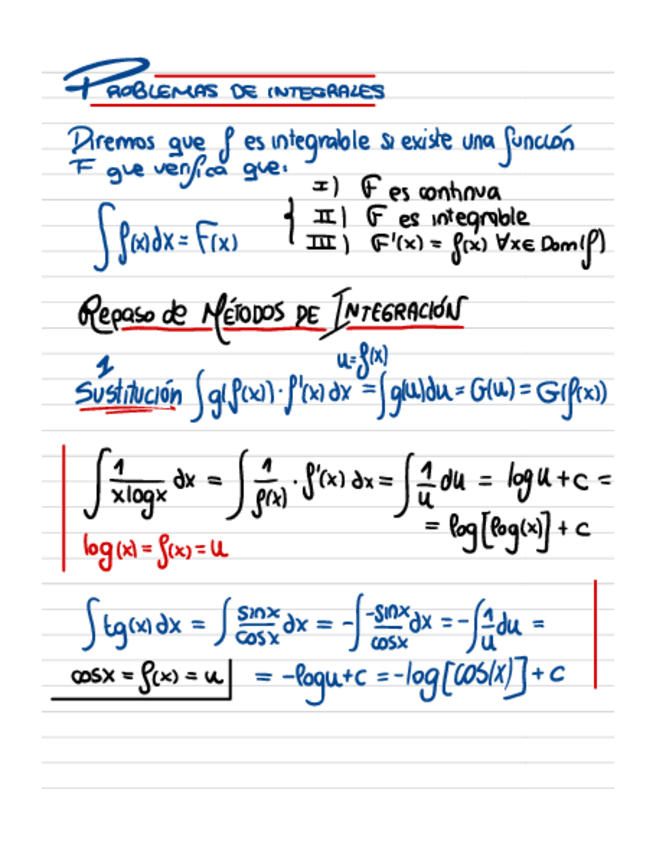 PROBLEMAS DE INTEGRALES
Diremos que f es integrable si existe una función
F que verifica que:
∫ f(x)dx = F(x)
I) F es continua
II) F es integrable
III) F'(x) = f(x) ∀x∈ Dom(f)
Repaso de MÉTODOS DE INTEGRACIÓN
1
Sustitución ∫ g(f(x))·f'(x)dx = ∫ g(u)du = G(u) = G(f(x))
u=f(x)
∫ 1/(xlogx) dx = ∫ 1/f(x) · f'(x) dx = ∫ 1/u du = log u + c =
= log[log(x)] + c
log(x) = f(x) = u
∫ tg(x) dx = ∫ sinx/cosx dx = -∫ -sinx/cosx dx = -∫ 1/u du =
cosx = f(x) = u
= -logu+c = -log[cos(x)] + c